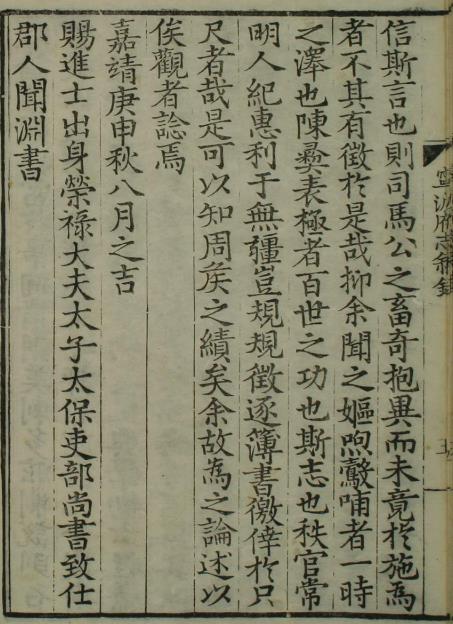 信斯言也則司馬公之畜奇抱異而未竟於施爲
者不其有徵於是哉抑余聞之嫗煦鷇哺者一時
之澤也陳彝表極者百世之功也斯志也秩官常
明人紀惠利于無疆豈規規徵逐簿書徼倖於只
尺者哉是可以知周矦之績矣余故爲之論述以
俟觀者諗焉
嘉靖庚申秋八月之吉
賜進士出身榮祿大夫太子太保吏部尚書致仕
郡人聞淵書